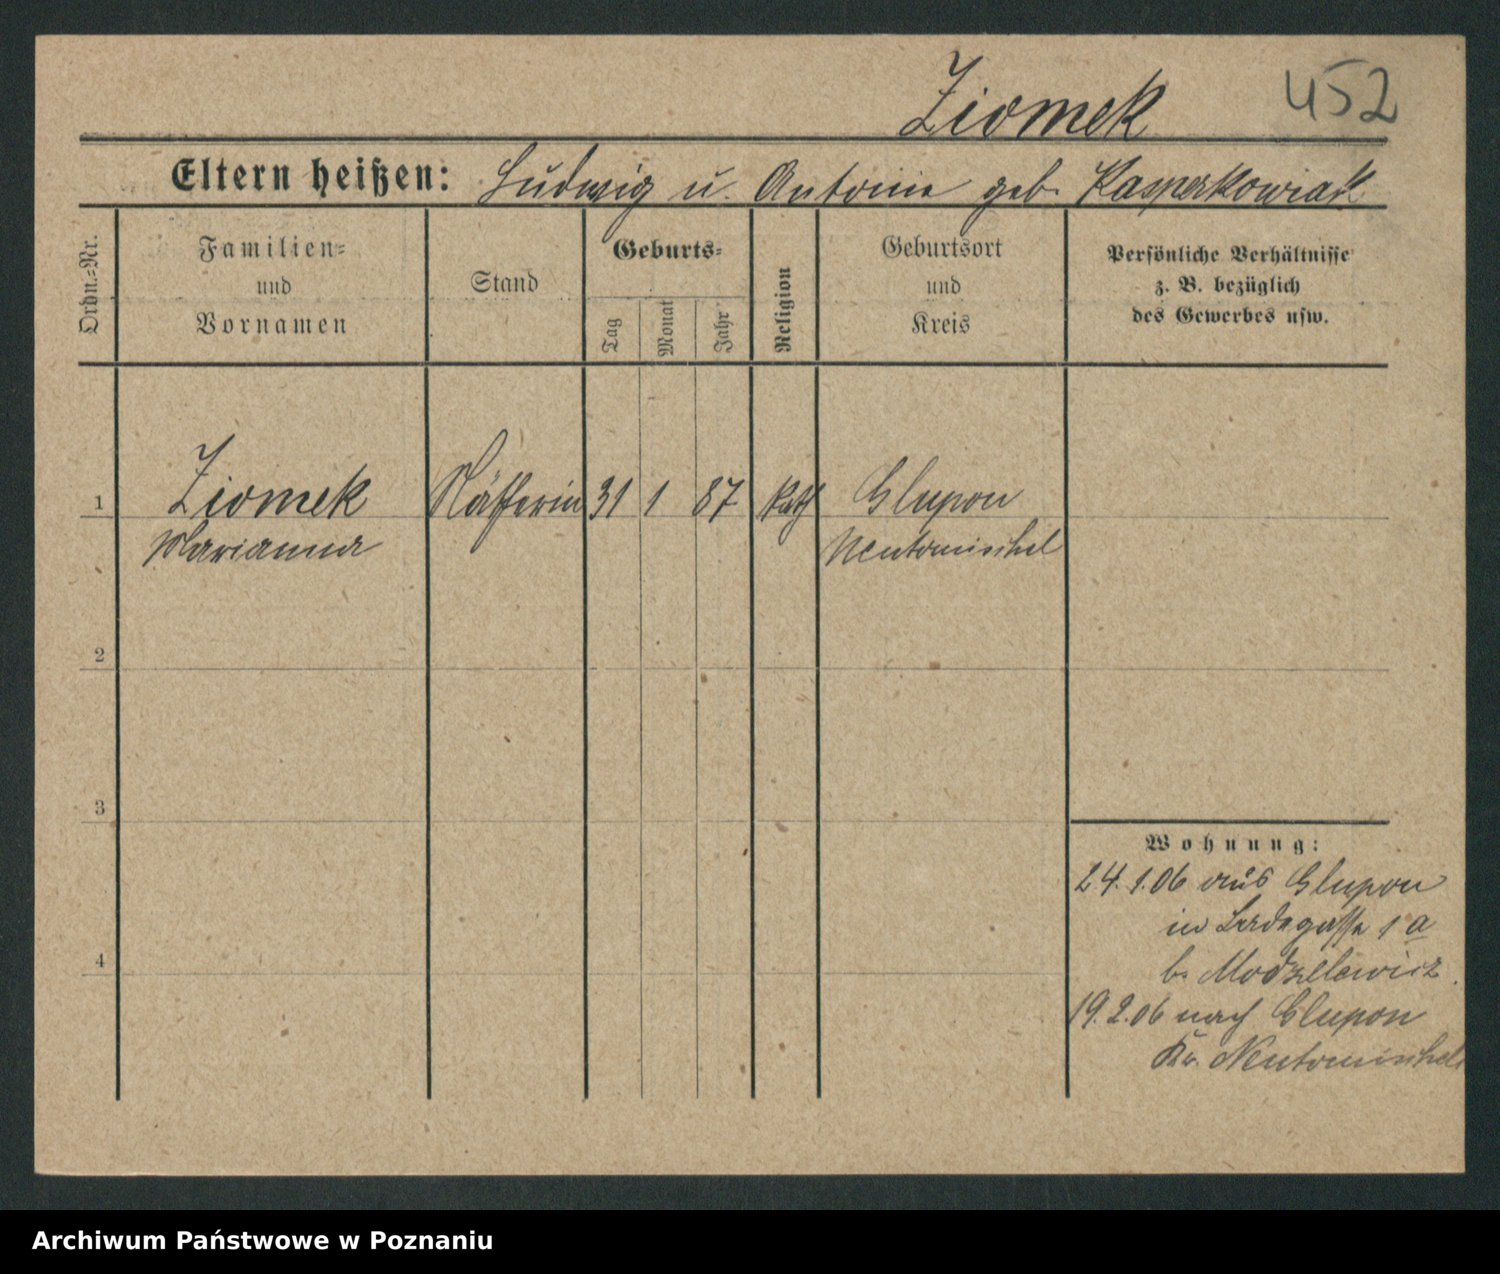 Ziomek 452
Eltern heißen: Ludwig u. Antonie geb. Kasperkowiak
Ordn.=Nr.
Familien=
und
Vornamen
Stand
Geburts=
Tag
Monat
Jahr
Religion
Geburtsort
und
Kreis
Persönliche Verhältnisse
z. B. bezüglich
des Gewerbes usw.
1 Ziomek Näherin 31 1 87 kath Glupon
Marianna Neutomischel
2
3
4
Wohnung:
24.1.06 aus Glupon
in 1 a
b. Modzelewicz
19.2.06 nach Glupon
Kr. Neutomischel
Archiwum Państwowe w Poznaniu